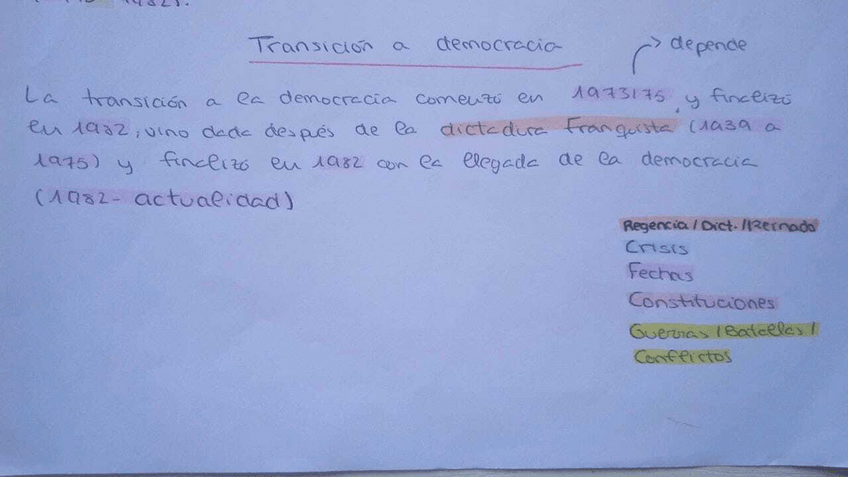 1982).
Transición a democracia
→ depende
La transición a la democracia comenzó en 1973/75, y finalizó
en 1982, vino dada despés de la dictadura Franquista (1939 a
1975) y finalizó en 1982 con la llegada de la democracia
(1982- actualidad)
Regencia / Dict. / Reinado
Crisis
Fechas
Constituciones
Guerras / Batallas /
Conflictos